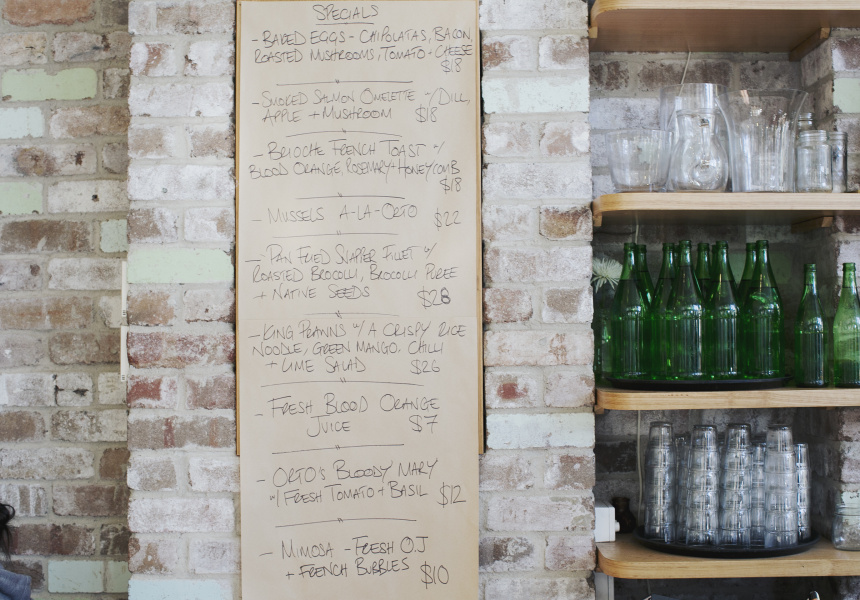 SPECIALS
- BAKED EGGS - CHIPOLATAS, BACON,
ROASTED MUSHROOMS, TOMATO + CHEESE
$18
- SMOKED SALMON OMELETTE w/ DILL,
APPLE + MUSHROOM $18
- BRIOCHE FRENCH TOAST w/
BLOOD ORANGE, ROSEMARY + HONEYCOMB
$18
- MUSSELS A-LA-ORTO $22
- PAN FRIED SNAPPER FILLET w/
ROASTED BROCOLLI, BROCOLLI PUREE
+ NATIVE SEEDS $28
- KING PRAWNS w/ A CRISPY RICE
NOODLE, GREEN MANGO, CHILLI
+ LIME SALAD $26
- FRESH BLOOD ORANGE
JUICE $7
- ORTO'S BLOODY MARY
w/ FRESH TOMATO + BASIL $12
- MIMOSA - FRESH O.J
+ FRENCH BUBBLES $10